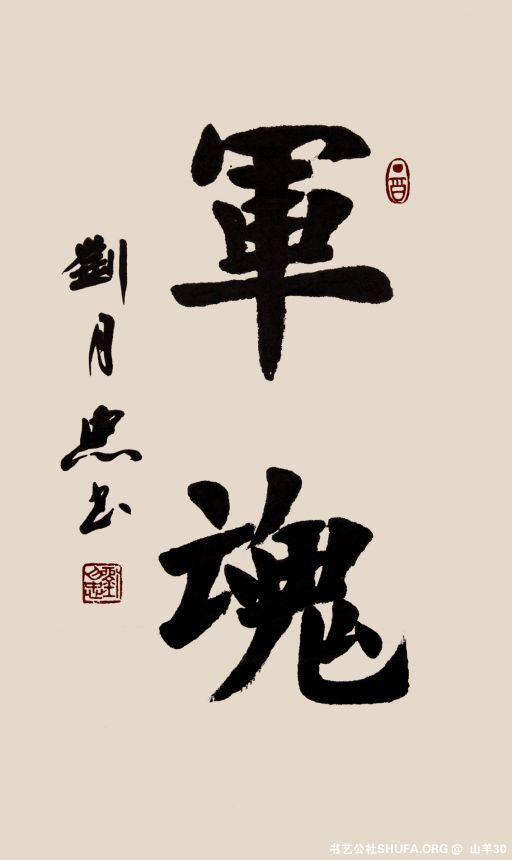 軍魂
劉月忠书
书艺公社SHUFA.ORG @ 山羊30